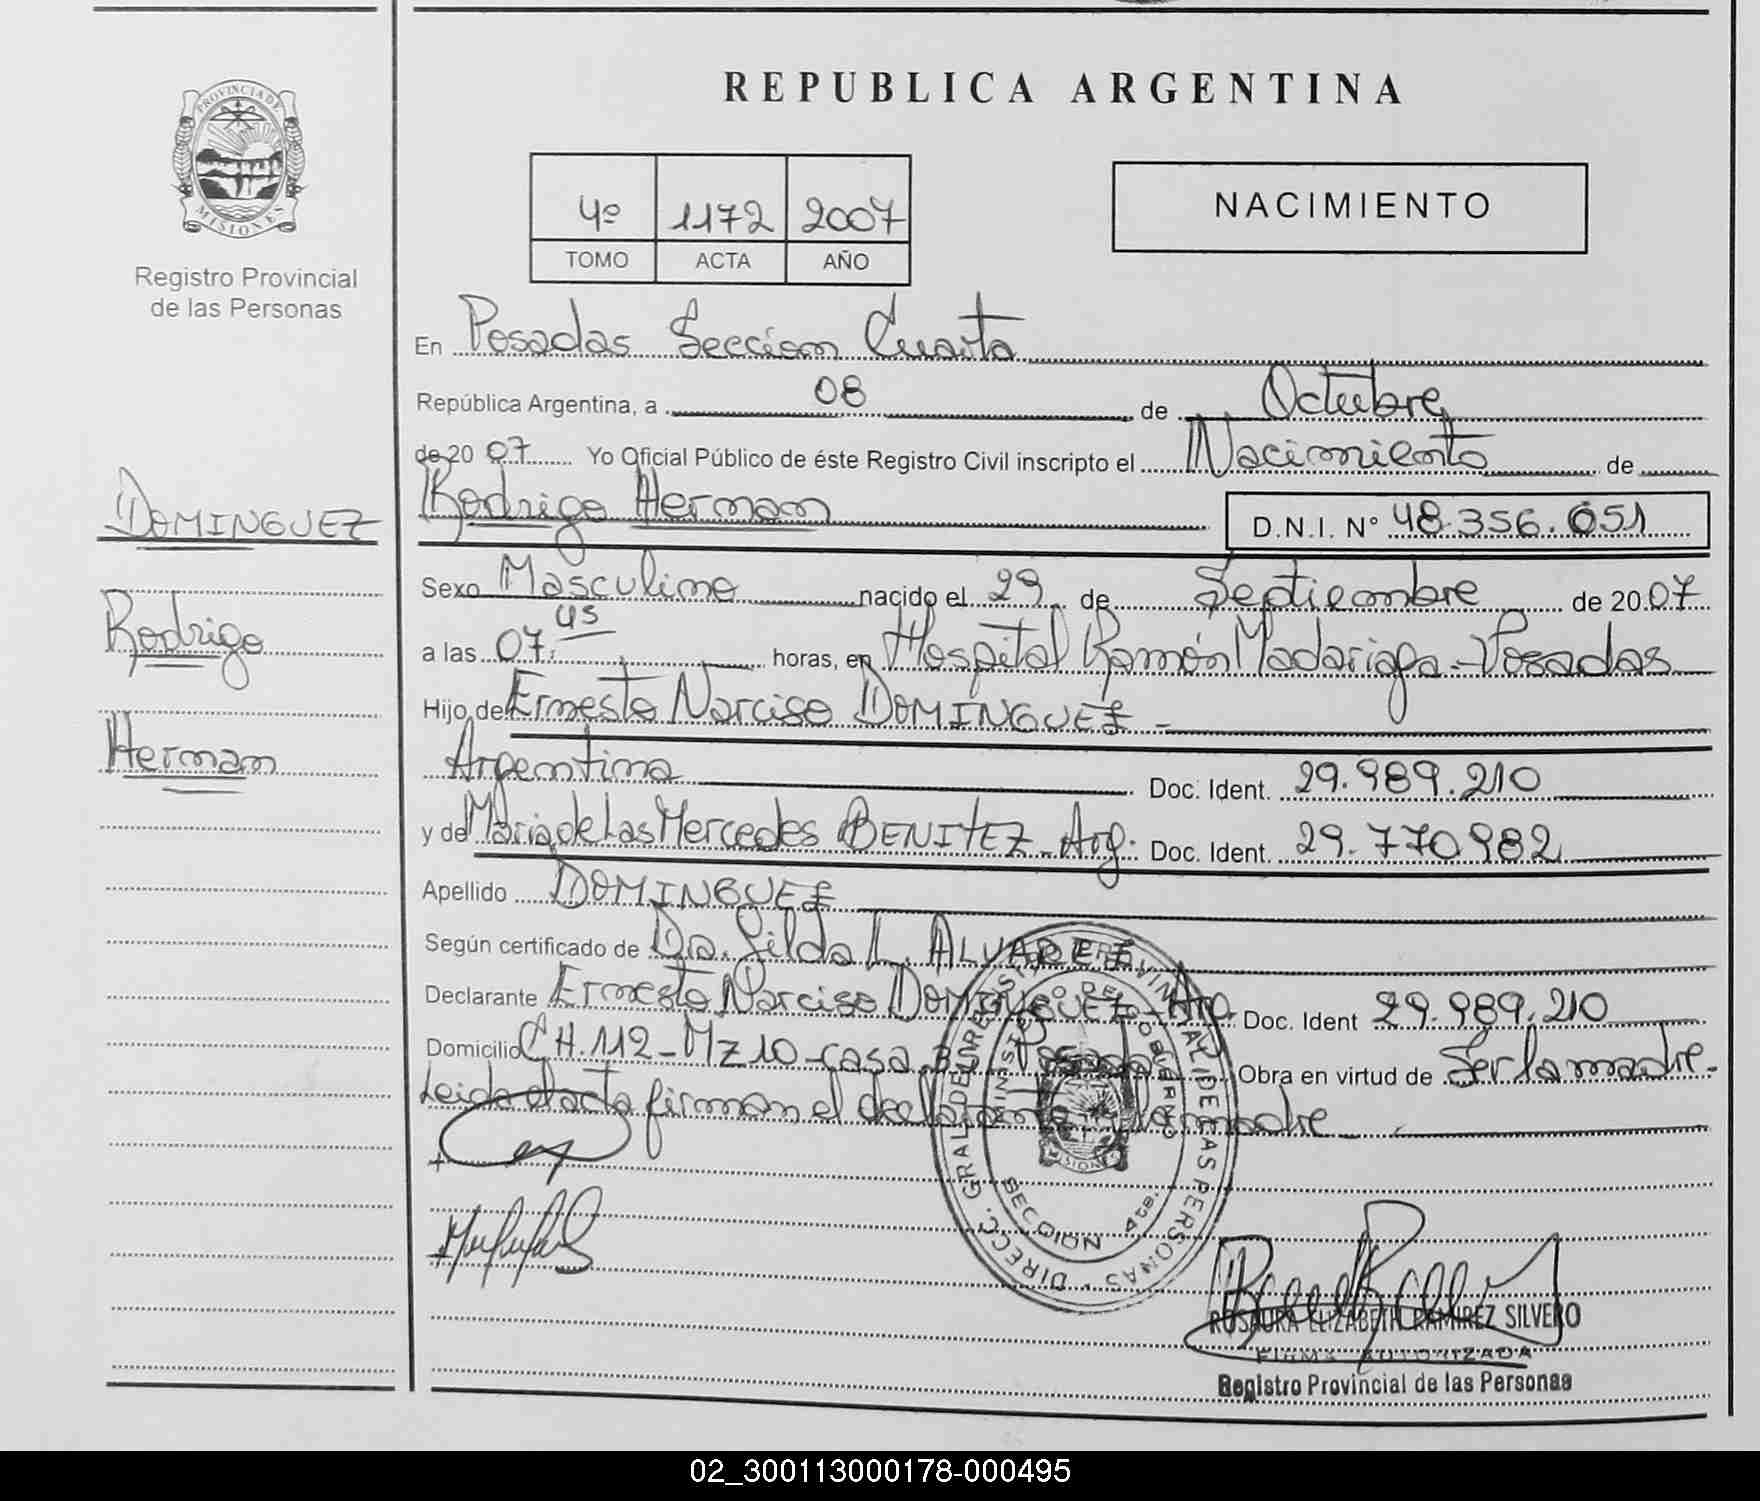 PROVINCIA DE
MISIONES
Registro Provincial
de las Personas
DOMINGUEZ
Rodrigo
Hernan
REPUBLICA ARGENTINA
4º 1172 2007
TOMO ACTA AÑO
NACIMIENTO
En Posadas Sección Cuarta
República Argentina, a 08 de Octubre
de 20 07 Yo Oficial Público de éste Registro Civil inscripto el Nacimiento de
Rodrigo Hernan D.N.I. N° 48.356.051
Sexo Masculino nacido el 29 de Septiembre de 20 07
a las 07,45 horas, en Hospital Ramón Madariaga - Posadas
Hijo de Ernesto Narciso DOMINGUEZ -
Argentina Doc. Ident. 29.989.210
y de Maria de Las Mercedes BENITEZ - Arg. Doc. Ident. 29.770.982
Apellido DOMINGUEZ
Según certificado de Dra. Gilda L. ALVAREZ
Declarante Ernesto Narciso DOMINGUEZ - Arg. Doc. Ident 29.989.210
Domicilio CH.112 - Mz 10 - casa Posadas Obra en virtud de Ser la madre -
Leida el acta firman el declarante y la madre
DIRECC. GRAL DEL REGISTRO PROVINCIAL DE LAS PERSONAS
MINISTERIO DE GOBIERNO
MISIONES
SECCION 4ta.
ROSAURA ELIZABETH RAMIREZ SILVERO
FIRMA AUTORIZADA
Registro Provincial de las Personas
02_300113000178-000495